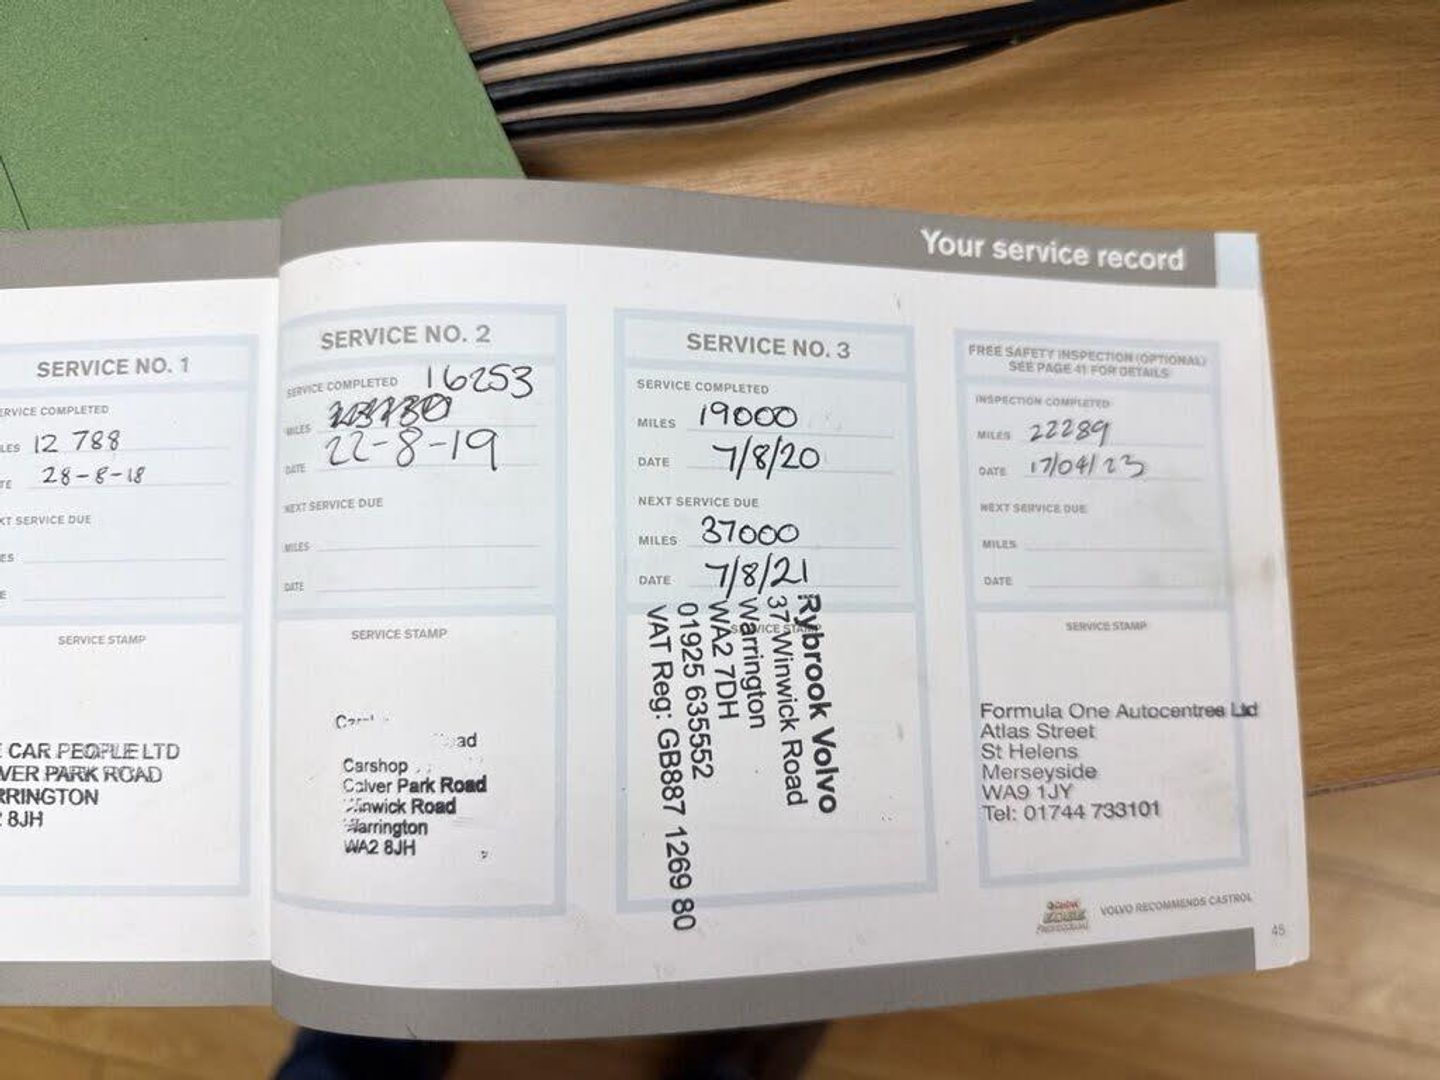 Your service record
SERVICE NO. 1
ERVICE COMPLETED
LES 12 788
TE 28-8-18
XT SERVICE DUE
ES
E
SERVICE STAMP
E CAR PEOPLE LTD
VER PARK ROAD
RRINGTON
2 8JH
SERVICE NO. 2
SERVICE COMPLETED 16253
MILES
DATE 22-8-19
NEXT SERVICE DUE
MILES
DATE
SERVICE STAMP
oad
Carshop
Calver Park Road
Winwick Road
Warrington
WA2 8JH
SERVICE NO. 3
SERVICE COMPLETED
MILES 19000
DATE 7/8/20
NEXT SERVICE DUE
MILES 37000
DATE 7/8/21
SERVICE STAMP
Rybrook Volvo
37 Winwick Road
Warrington
WA2 7DH
01925 635552
VAT Reg: GB887 1269 80
FREE SAFETY INSPECTION (OPTIONAL)
SEE PAGE 41 FOR DETAILS
INSPECTION COMPLETED
MILES 22289
DATE 17/04/23
NEXT SERVICE DUE
MILES
DATE
SERVICE STAMP
Formula One Autocentres Ltd
Atlas Street
St Helens
Merseyside
WA9 1JY
Tel: 01744 733101
Castrol
EDGE
PROFESSIONAL
VOLVO RECOMMENDS CASTROL
45